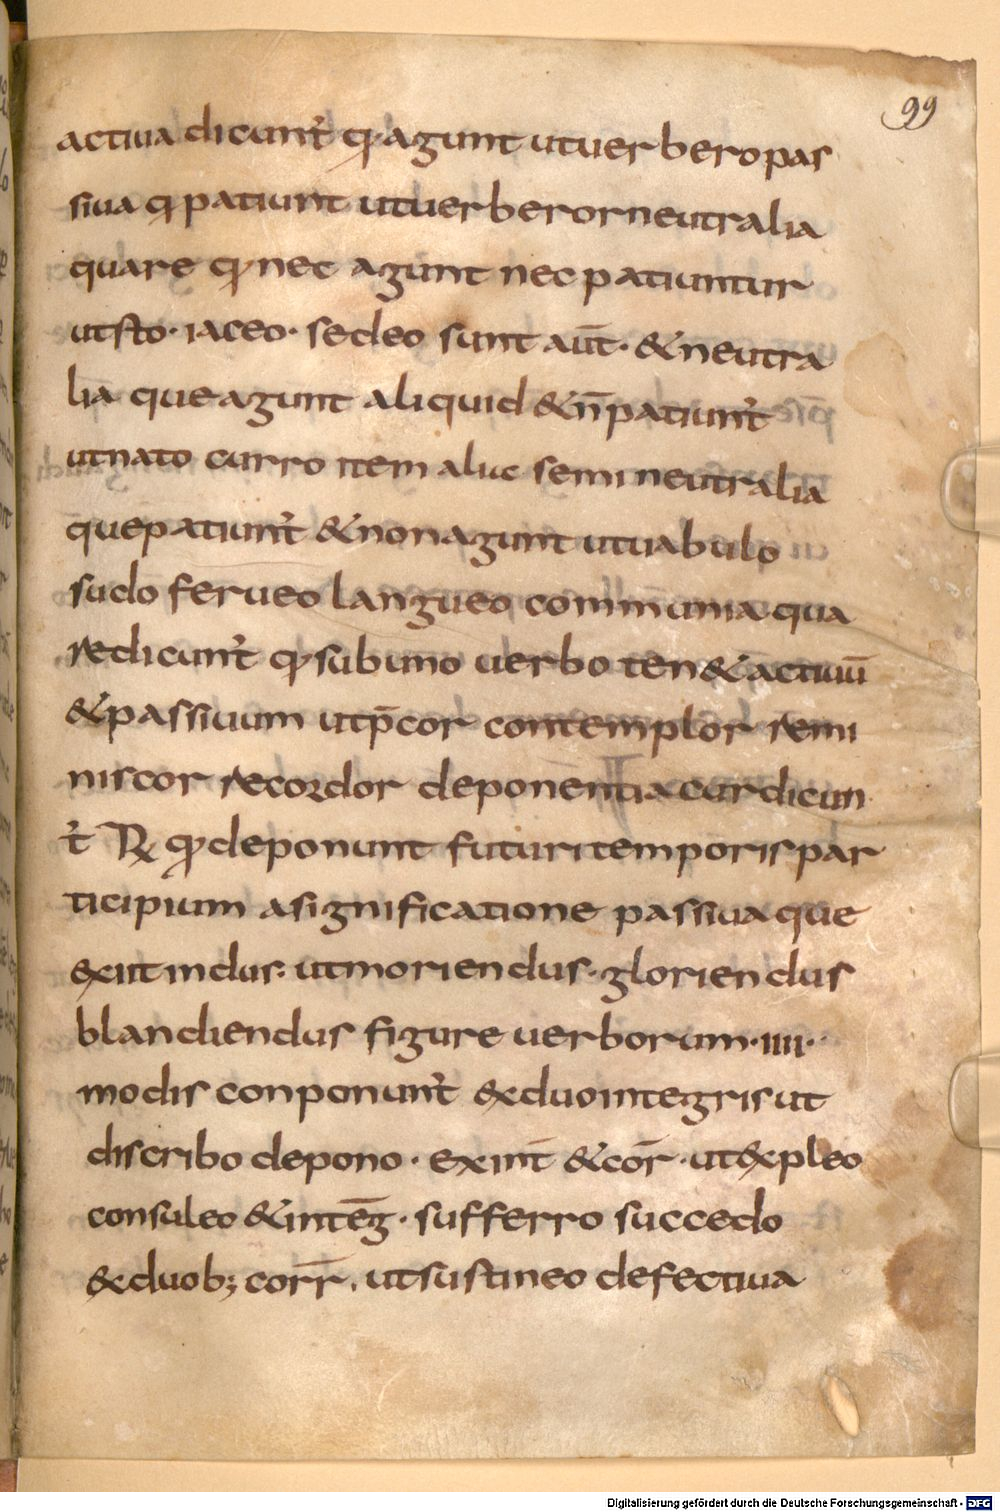 99
actiua dicunt̉ qꝛ agunt utuerbero pas
siua qꝛ patiunt utuerberor neutralia
quare qꝛ nec agunt nec patiuntur
utsto· iaceo· sedeo sunt aut̄· & neutra
lia que agunt aliquid & n̄ patiunt̉
utnato curro item aliic semi neutralia
quepatiunt̉ & non agunt utuabulo
sudo ferueo langueo communia qua
redicunt̉ qꝛ sub uno uerbo ten& actiuū
& passiuum utp̄cor contemplor remi
niscor recordor deponentia cur dicun
t̉ R̸ qꝛ deponunt futuri temporis par
ticipium a significatione passiua que
exiit in dus· ut moriendus· gloriendus
blandiendus figure uerborum· iiii·
modis conponunt̉ &x duo integris ut
discribo depono· ex int̄ & cor̄· ut &xpleo
consuleo & intēg· sufferro succedo
&x duob; corr̄· ut sustineo defectiua
Digitalisierung gefördert durch die Deutsche Forschungsgemeinschaft - DFG